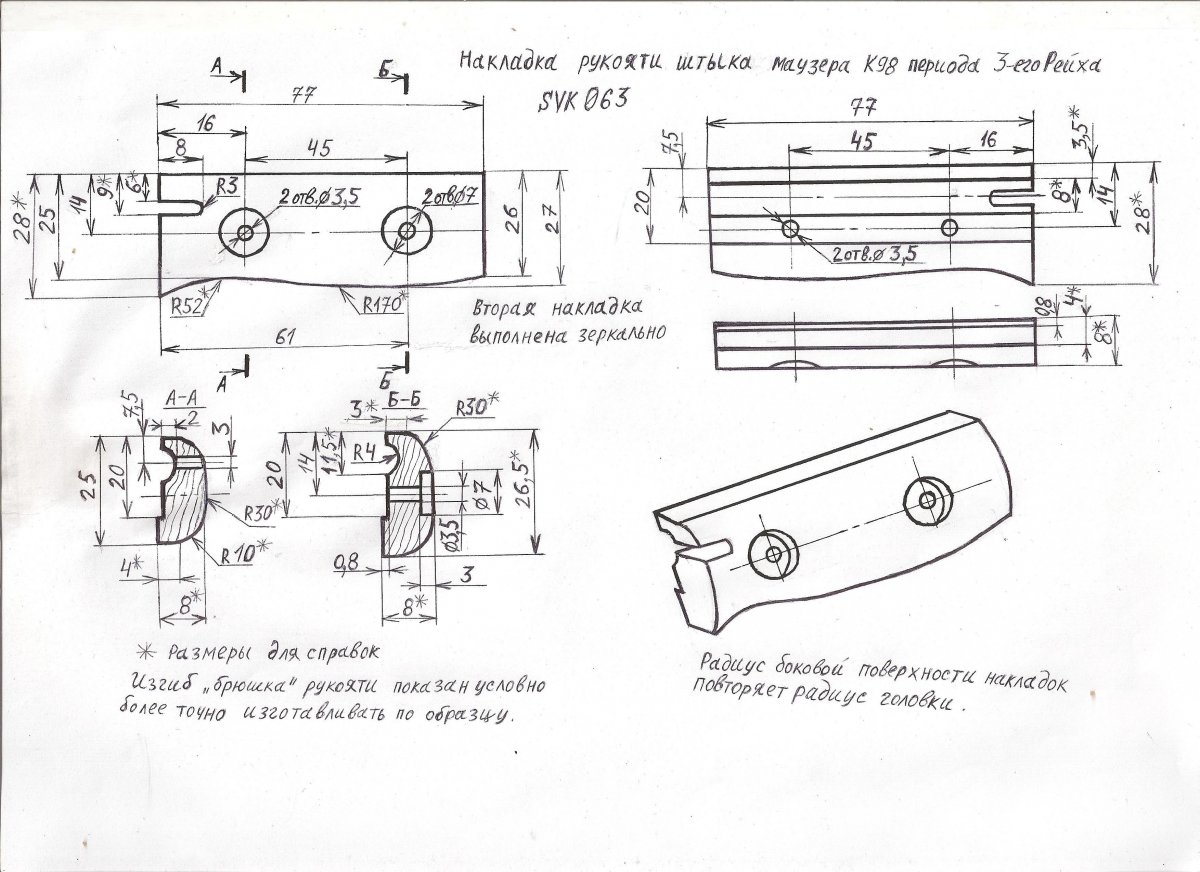 Накладка рукояти штыка маузера К98 периода 3-его Рейха
SVK 063
А
Б
77
16
8
45
28*
25
14
9*
6*
R3
2 отв.Ø3,5
2 отвØ7
26
27
R52*
R170*
61
А
Б
Вторая накладка
выполнена зеркально
77
45
16
3,5*
7,5
20
8*
14
28*
2 отв.Ø3,5
0,8
4*
8*
А-А
7,5
2
3
25
20
R30*
R10*
4*
8*
Б-Б
3*
R30*
R4
20
14
11,5*
26,5*
Ø7
Ø3,5
0,8
3
8*
* Размеры для справок
Изгиб „брюшка" рукояти показан условно
более точно изготавливать по образцу.
Радиус боковой поверхности накладок
повторяет радиус головки.